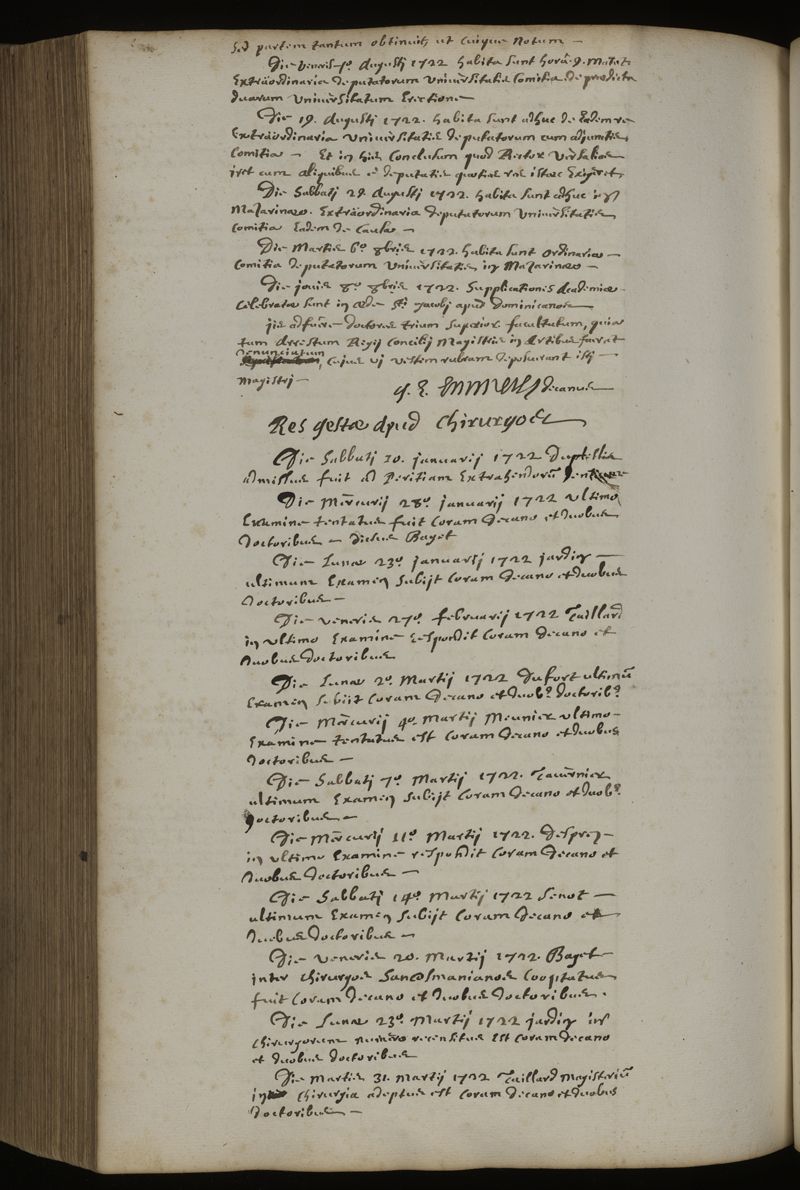 sed partem tantum obtinuit, ut cuique notum —
Die veneris 7º Augusti 1722 habita sunt horâ 9. matut.
Extraordinaria deputatorum Universitatis Comitia de praedicta
duarum Universitatum Erectione
Die 19. Augusti 1722. habita sunt adhuc de eadem re
Extraordinaria Universitatis deputatorum cum adjunctis
Comitia — Et in his Conclusum quod Rector Versalias
iret cum aliquibus è deputatis
Die Sabbati 29 Augusti 1722. habita sunt adhuc in
Mazarinaeo. Extraordinaria deputatorum Universitatis
Comitia Eadem de Causa —
Die Martis 6º 8bris 1722. habita sunt ordinaria —
Comitia deputatorum Universitatis in Mazarinaeo —
Die jovis 8º 8bris 1722. Supplicationes Academiae
Celebratae sunt in aede Sti Jacobi apud Dominicanos
iis adfuere doctores trium Superior. facultatum, quia
tum Arrestum Regii Concilii Magistris in Artibus fuerat
denunciatum, Cujus vi vestem rubram deposuerant isti —
Magistri —
decanus
Res gestae apud Chirurgos
Die Sabbati 10. januarij 1722
admissus fuit ad Peritiam Extrahendorū dentium
Die Mercurij 28º januarij 1722 ultimo
Examine tentatus fuit Coram decano et duobus
doctoribus — dictus Baget
Die Lunae 23º januarij 1722 jardin —
ultimum Examen Subijt Coram decano et duobus
doctoribus —
Die veneris 27º februarij 1722 Taillard
in ultimo Examine respondit Coram decano et
duobus doctoribus
Die Lunae 2º Martij 1722 Dufort ultimū
Examen Subiit Coram decano et duob9 doctorib9
Die Mercurij 4º Martij Meunier ultimo —
Examine tentatus est Coram decano et duobus
doctoribus —
Die Sabbati 7º Martij 1722. Tavernier
ultimum Examen Subijt Coram decano et duob9
doctoribus —
Die Mercurij 11º Martij 1722. Desprez —
in ultimo Examine respondit Coram decano et
duobus doctoribus —
Die Sabbati 14º Martij 1722 Senot —
ultimum Examen Subijt Coram decano et
duobus doctoribus —
Die veneris 20. Martij 1722. Baget
inter chirurgos SanCosmianos Cooptatus
fuit Coram decano et duobus doctoribus.
Die Lunae 23º Martij 1722 jardin in
chirurgorum numero recensitus est Coram decano
et duobus doctoribus
Die Martis 31. Martij 1722 Taillard Magisteriū
in chirurgia adeptus est Coram decano et duobus
doctoribus —